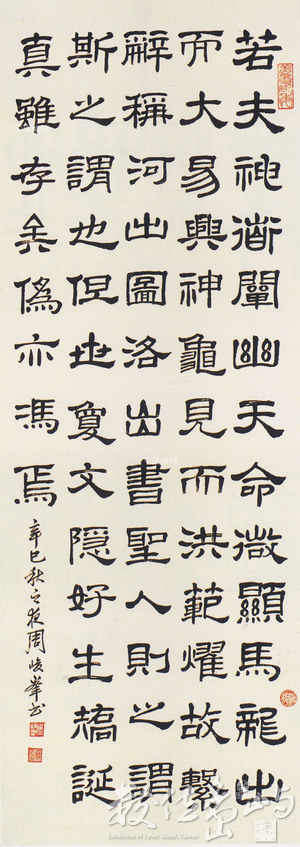 若夫神道闡幽天命微顯馬龍出
而大易興神龜見而洪範耀故繫
辭稱河出圖洛出書聖人則之謂
斯之謂也但世敻文隱好生矯誕
真雖存矣僞亦馮焉
辛巳秋之夜周峯書
數位島嶼